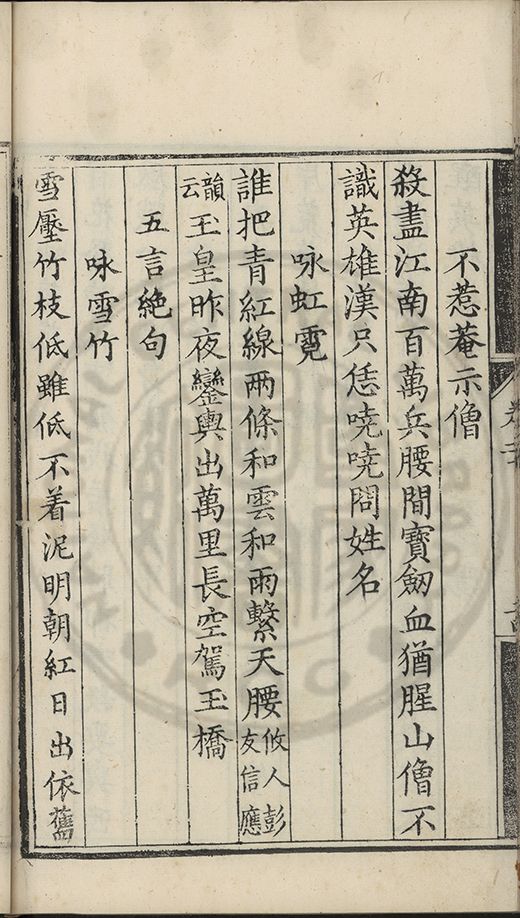 不惹菴示僧
殺盡江南百萬兵腰間寶劒血猶腥山僧不
識英雄漢只恁嘵嘵問姓名
咏虹霓
誰把青紅線兩條和雲和雨繫天腰攸人彭友信應
韻云玉皇昨夜鑾輿出萬里長空駕玉橋
五言絶句
咏雪竹
雪壓竹枝低雖低不着泥明朝紅日出依舊